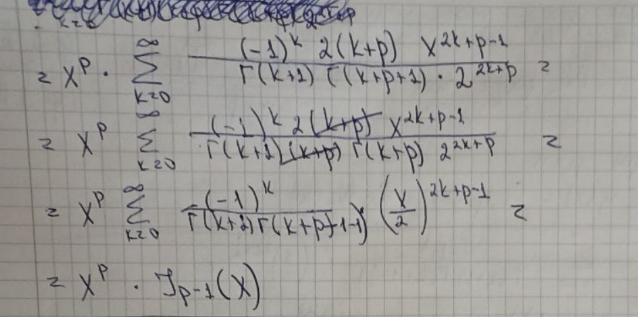 = x^p · ∑_{k=0}^{∞} \frac{(-1)^k 2(k+p) x^{2k+p-1}}{Γ(k+1) Γ(k+p+1) · 2^{2k+p}} =
= x^p ∑_{k=0}^{∞} \frac{(-1)^k 2(k+p) x^{2k+p-1}}{Γ(k+1)(k+p) Γ(k+p) 2^{2k+p}} =
= x^p ∑_{k=0}^{∞} \frac{(-1)^k}{Γ(k+1) Γ(k+p+1-1)} (\frac{x}{2})^{2k+p-1} =
= x^p · J_{p-1}(x)